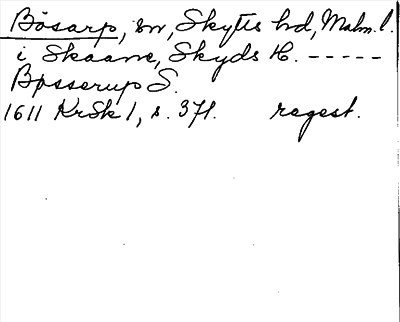 Bösarp, sn, Skytts hd, Malm. l.
i Skaane, Skyds H. -----
Bosserup S.
1611 KrSk 1, s. 371. regest.